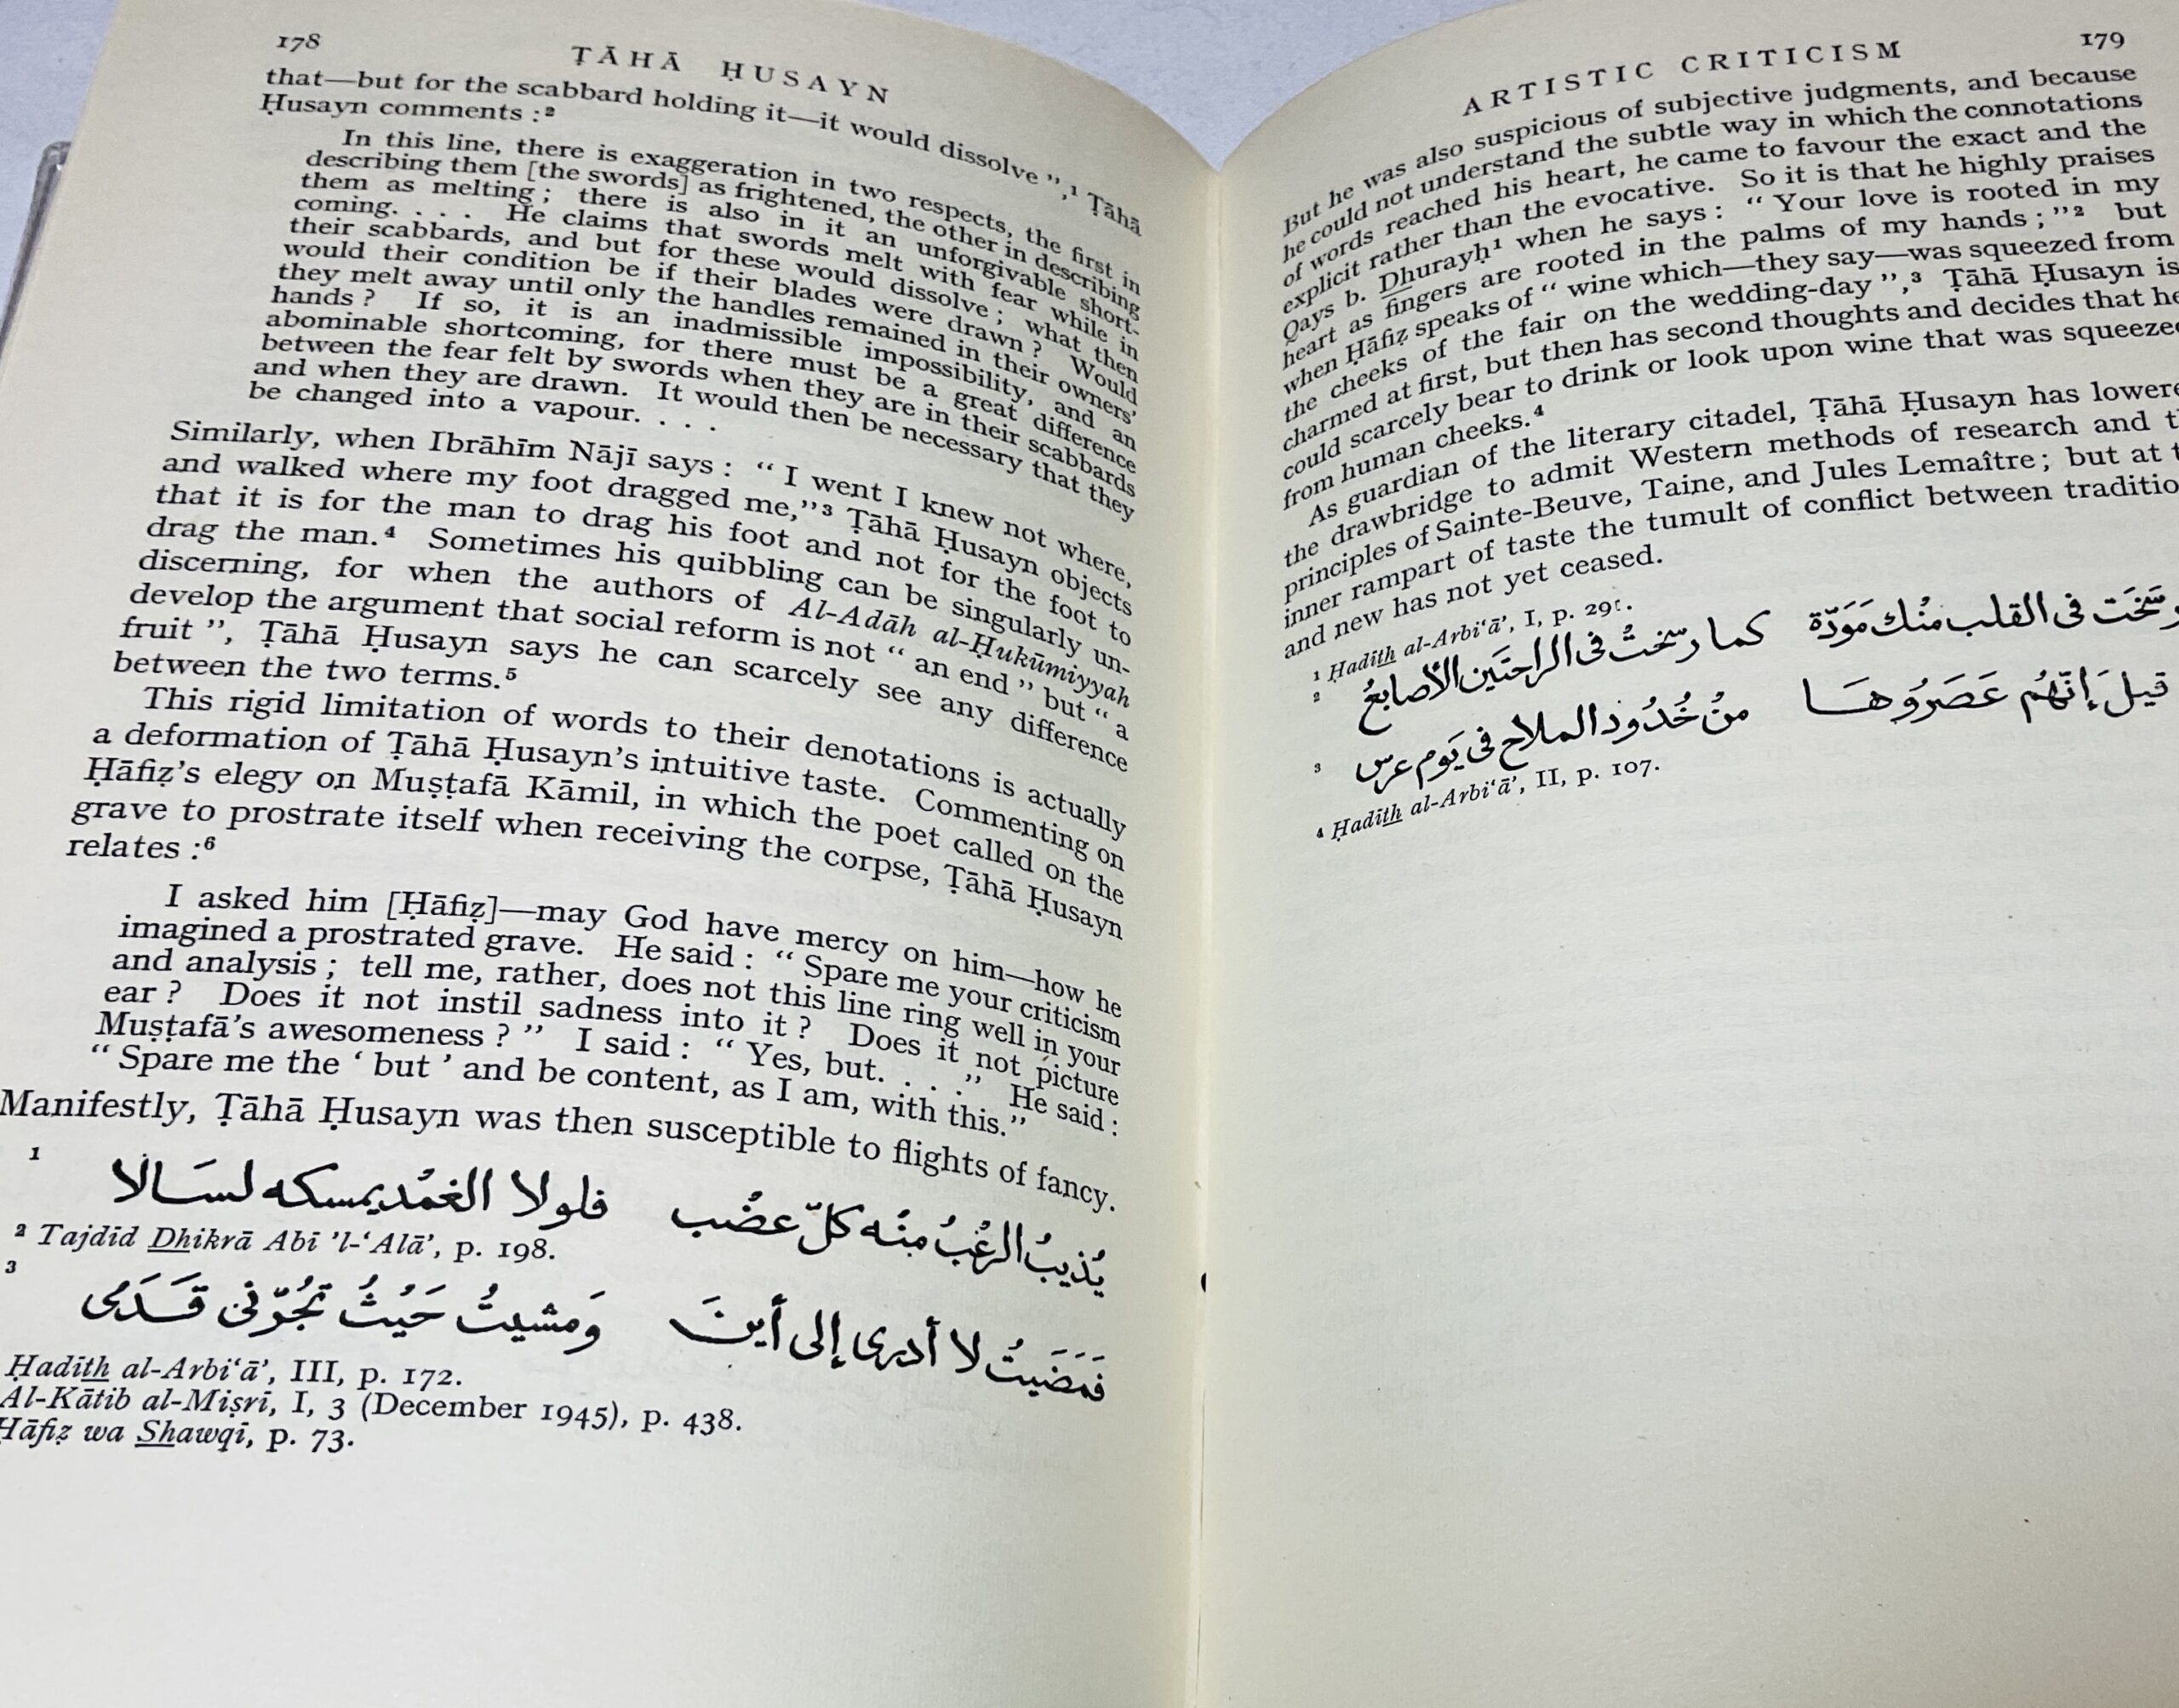 178
ṬĀHĀ ḤUSAYN
that—but for the scabbard holding it—it would dissolve ",¹ Ṭāhā
Ḥusayn comments :²
In this line, there is exaggeration in two respects, the first in
describing them [the swords] as frightened, the other in describing
them as melting ; there is also in it an unforgivable short-
coming. . . . He claims that swords melt with fear while in
their scabbards, and but for these would dissolve ; what then
would their condition be if their blades were drawn ? Would
they melt away until only the handles remained in their owners'
hands ? If so, it is an inadmissible impossibility, and an
abominable shortcoming, for there must be a great difference
between the fear felt by swords when they are in their scabbards
and when they are drawn. It would then be necessary that they
be changed into a vapour. . . .
Similarly, when Ibrāhīm Nājī says : " I went I knew not where,
and walked where my foot dragged me,"³ Ṭāhā Ḥusayn objects
that it is for the man to drag his foot and not for the foot to
drag the man.⁴ Sometimes his quibbling can be singularly un-
discerning, for when the authors of Al-Adāh al-Ḥukūmiyyah
develop the argument that social reform is not " an end " but " a
fruit ", Ṭāhā Ḥusayn says he can scarcely see any difference
between the two terms.⁵
This rigid limitation of words to their denotations is actually
a deformation of Ṭāhā Ḥusayn's intuitive taste. Commenting on
Ḥāfiẓ's elegy on Muṣṭafā Kāmil, in which the poet called on the
grave to prostrate itself when receiving the corpse, Ṭāhā Ḥusayn
relates :⁶
I asked him [Ḥāfiẓ]—may God have mercy on him—how he
imagined a prostrated grave. He said : " Spare me your criticism
and analysis ; tell me, rather, does not this line ring well in your
ear ? Does it not instil sadness into it ? Does it not picture
Muṣṭafā's awesomeness ? " I said : " Yes, but. . . ." He said :
" Spare me the ' but ' and be content, as I am, with this."
Manifestly, Ṭāhā Ḥusayn was then susceptible to flights of fancy.
1 يُذيبُ الرعْبُ منْه كلّ عضْب فلولا الغمْد يمسكه لسَالا
2 Tajdīd Dhikrā Abī 'l-'Alā', p. 198.
3 فمَضَيتُ لا أدرى إلى أينَ وَمشيتُ حَيْثُ تجُرّنى قَدَمى
Ḥadīth al-Arbi'ā', III, p. 172.
Al-Kātib al-Miṣrī, I, 3 (December 1945), p. 438.
Ḥāfiẓ wa Shawqī, p. 73.
ARTISTIC CRITICISM
179
But he was also suspicious of subjective judgments, and because
he could not understand the subtle way in which the connotations
of words reached his heart, he came to favour the exact and the
explicit rather than the evocative. So it is that he highly praises
Qays b. Dhurayḥ¹ when he says : " Your love is rooted in my
heart as fingers are rooted in the palms of my hands ; "² but
when Ḥāfiẓ speaks of " wine which—they say—was squeezed from
the cheeks of the fair on the wedding-day ",³ Ṭāhā Ḥusayn is
charmed at first, but then has second thoughts and decides that he
could scarcely bear to drink or look upon wine that was squeezed
from human cheeks.⁴
As guardian of the literary citadel, Ṭāhā Ḥusayn has lowere
the drawbridge to admit Western methods of research and t
principles of Sainte-Beuve, Taine, and Jules Lemaître ; but at t
inner rampart of taste the tumult of conflict between traditio
and new has not yet ceased.
1 Ḥadīth al-Arbi'ā', I, p.
2 رسّخَت فى القلب منْك مَوَدّة كما رسّختُ فى الراحتَين الأصابعُ
3 قيلَ إنّهُم عَصَرُوهَا منْ خُدُود الملاح فى يَوم عرس
4 Ḥadīth al-Arbi'ā', II, p. 107.